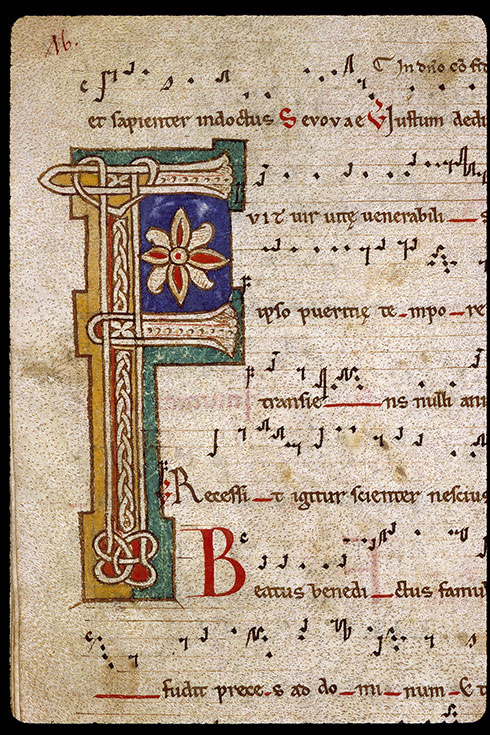 16.
In dno cō fid
et sapienter indoctus Sevovae V Iustum dedu
F VIT uir uitę uenerabili s
ipso pueritię te-mpo-re
transie ns nulli anı
Recessi-t igitur scienter nescius
Beatus benedi-ctus famul
fudit prece-s ad do-mi-num-Et